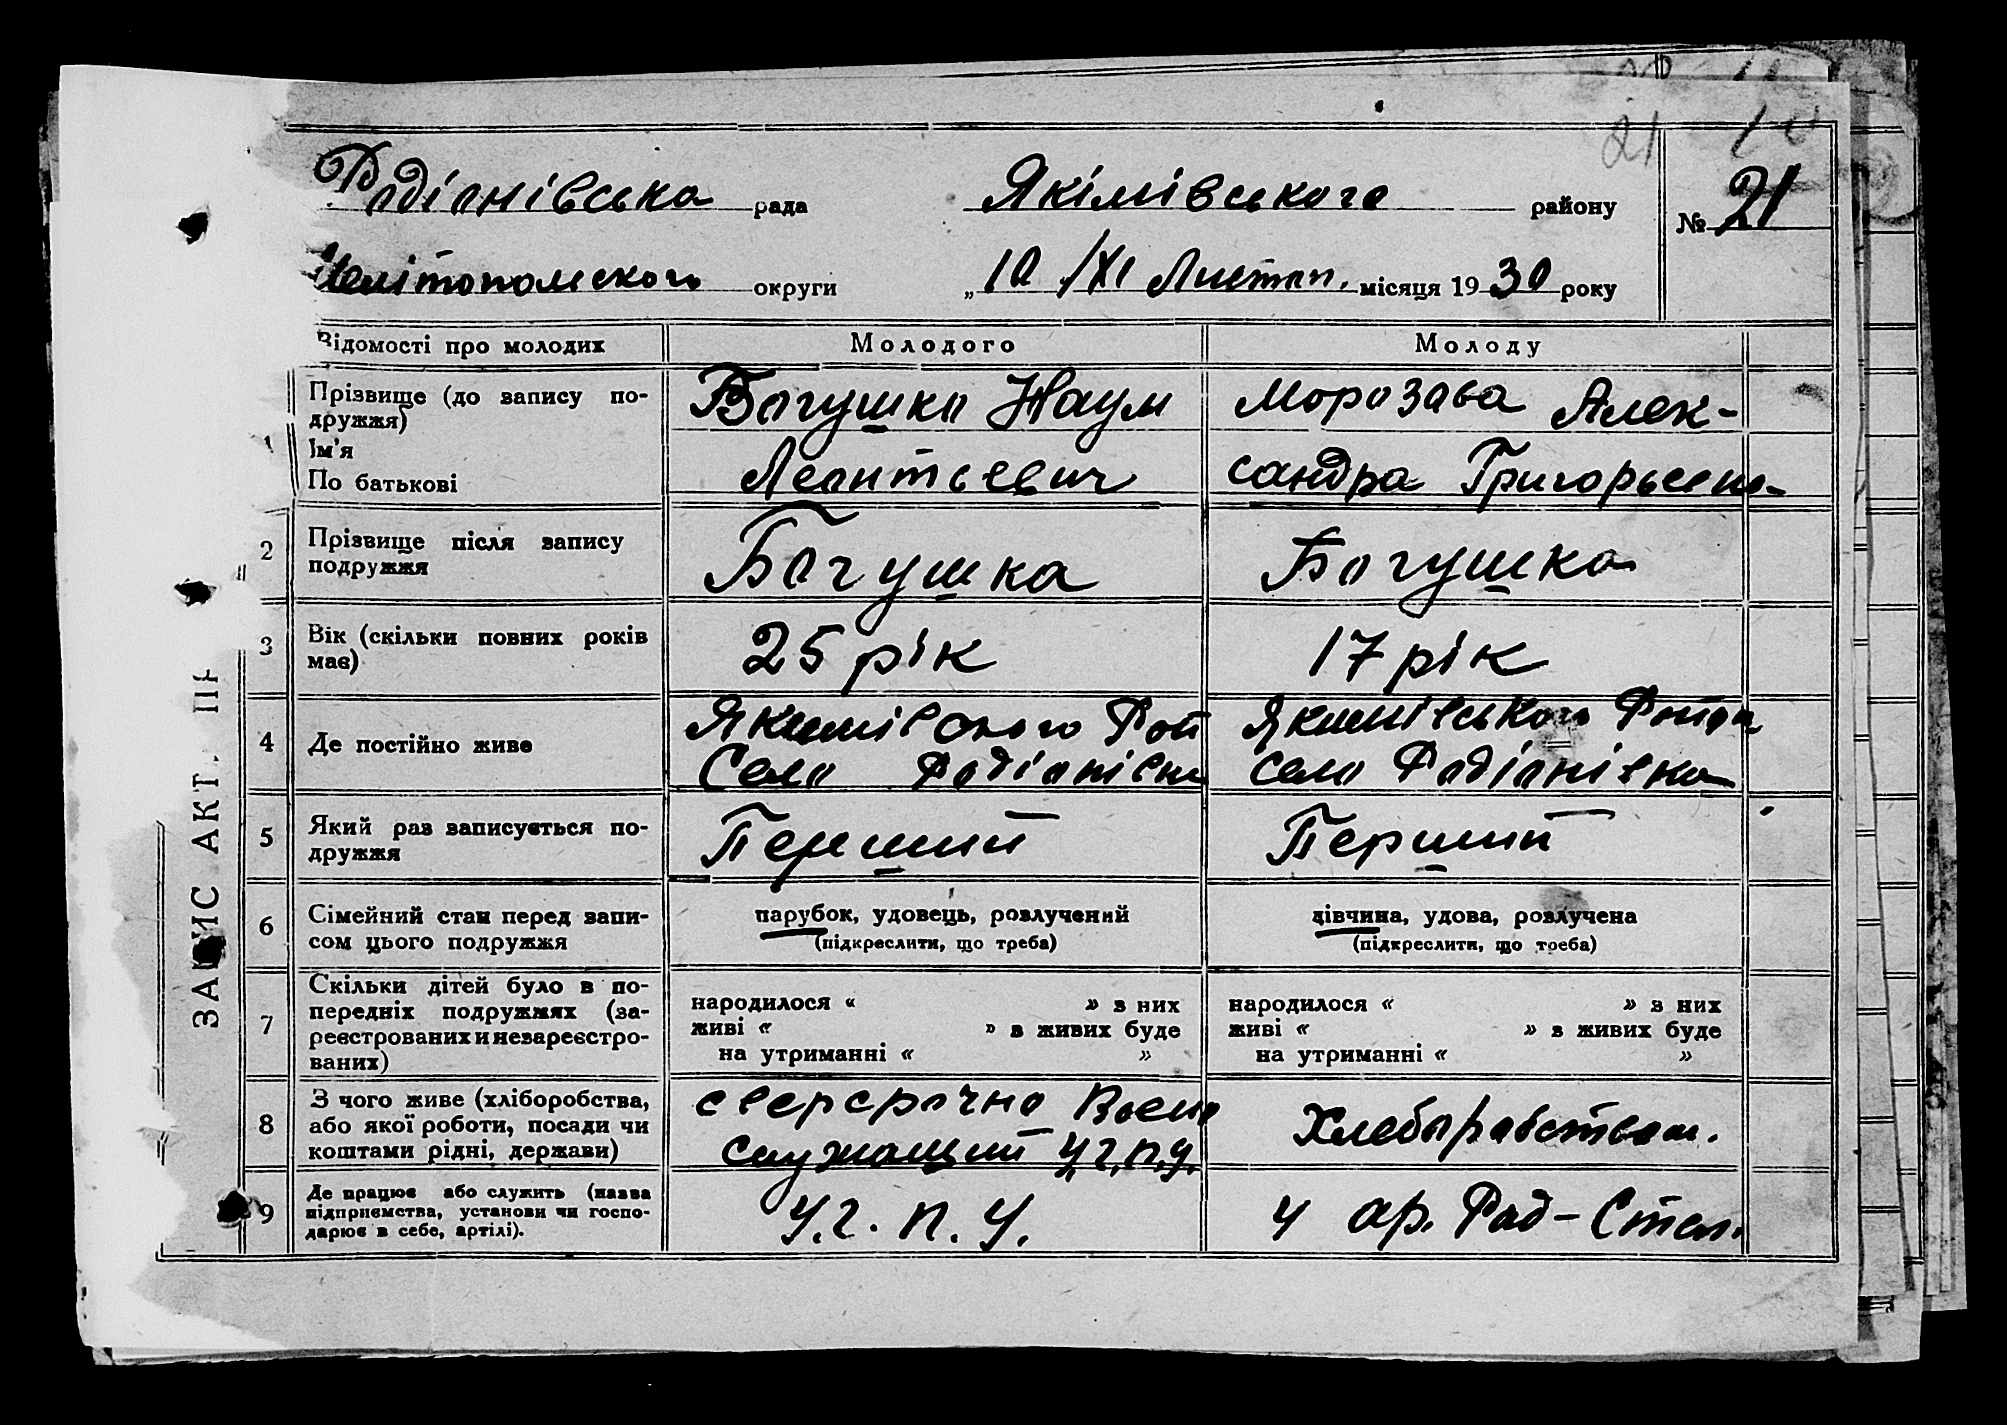 21
Радіанівська рада Якімівського району № 21
Мелітопомского округи „10/XI Листоп. місяця 1930 року
Відомості про молодих Молодого Молоду
Прізвище (до запису по-
дружжя)
Ім'я
По батькові
Богушко Наум
Леонтьевич
Морозава Алек-
сандра Григорьевн-
2 Прізвище після запису
подружжя
Богушка Богушка
3 Вік (скільки повних років
має)
25 рік 17 рік
4 Де постійно живе
Якимівского Рай
Село Радіанівка
Якимівського Району
село Радіанівка
5 Який раз записується по-
дружжя
Перший Перший
6 Сімейний стан перед запи-
сом цього подружжя
парубок, удовець, розлучений
(підкреслити, що треба)
дівчина, удова, розлучена
(підкреслити, що треба)
7 Скільки дітей було в по-
передніх подружжях (за-
реєстрованих и незареєстро-
ваних)
народилося “ » з них
живі “ » в живих буде
на утриманні “ »
народилося “ » з них
живі “ » з живих буде
на утриманні “ »
8 З чого живе (хліборобства,
або якої роботи, посади чи
коштами рідні, держави)
сверсрочно Воено
служащий У,г,п,у.
Хлебыравством.
9 Де працює або служить (назва
підприємства, установи чи госпо-
дарює в себе, артілі).
У.г.п.У. У ар. Рад-Степ.
ЗАПИС АКТ. ПР